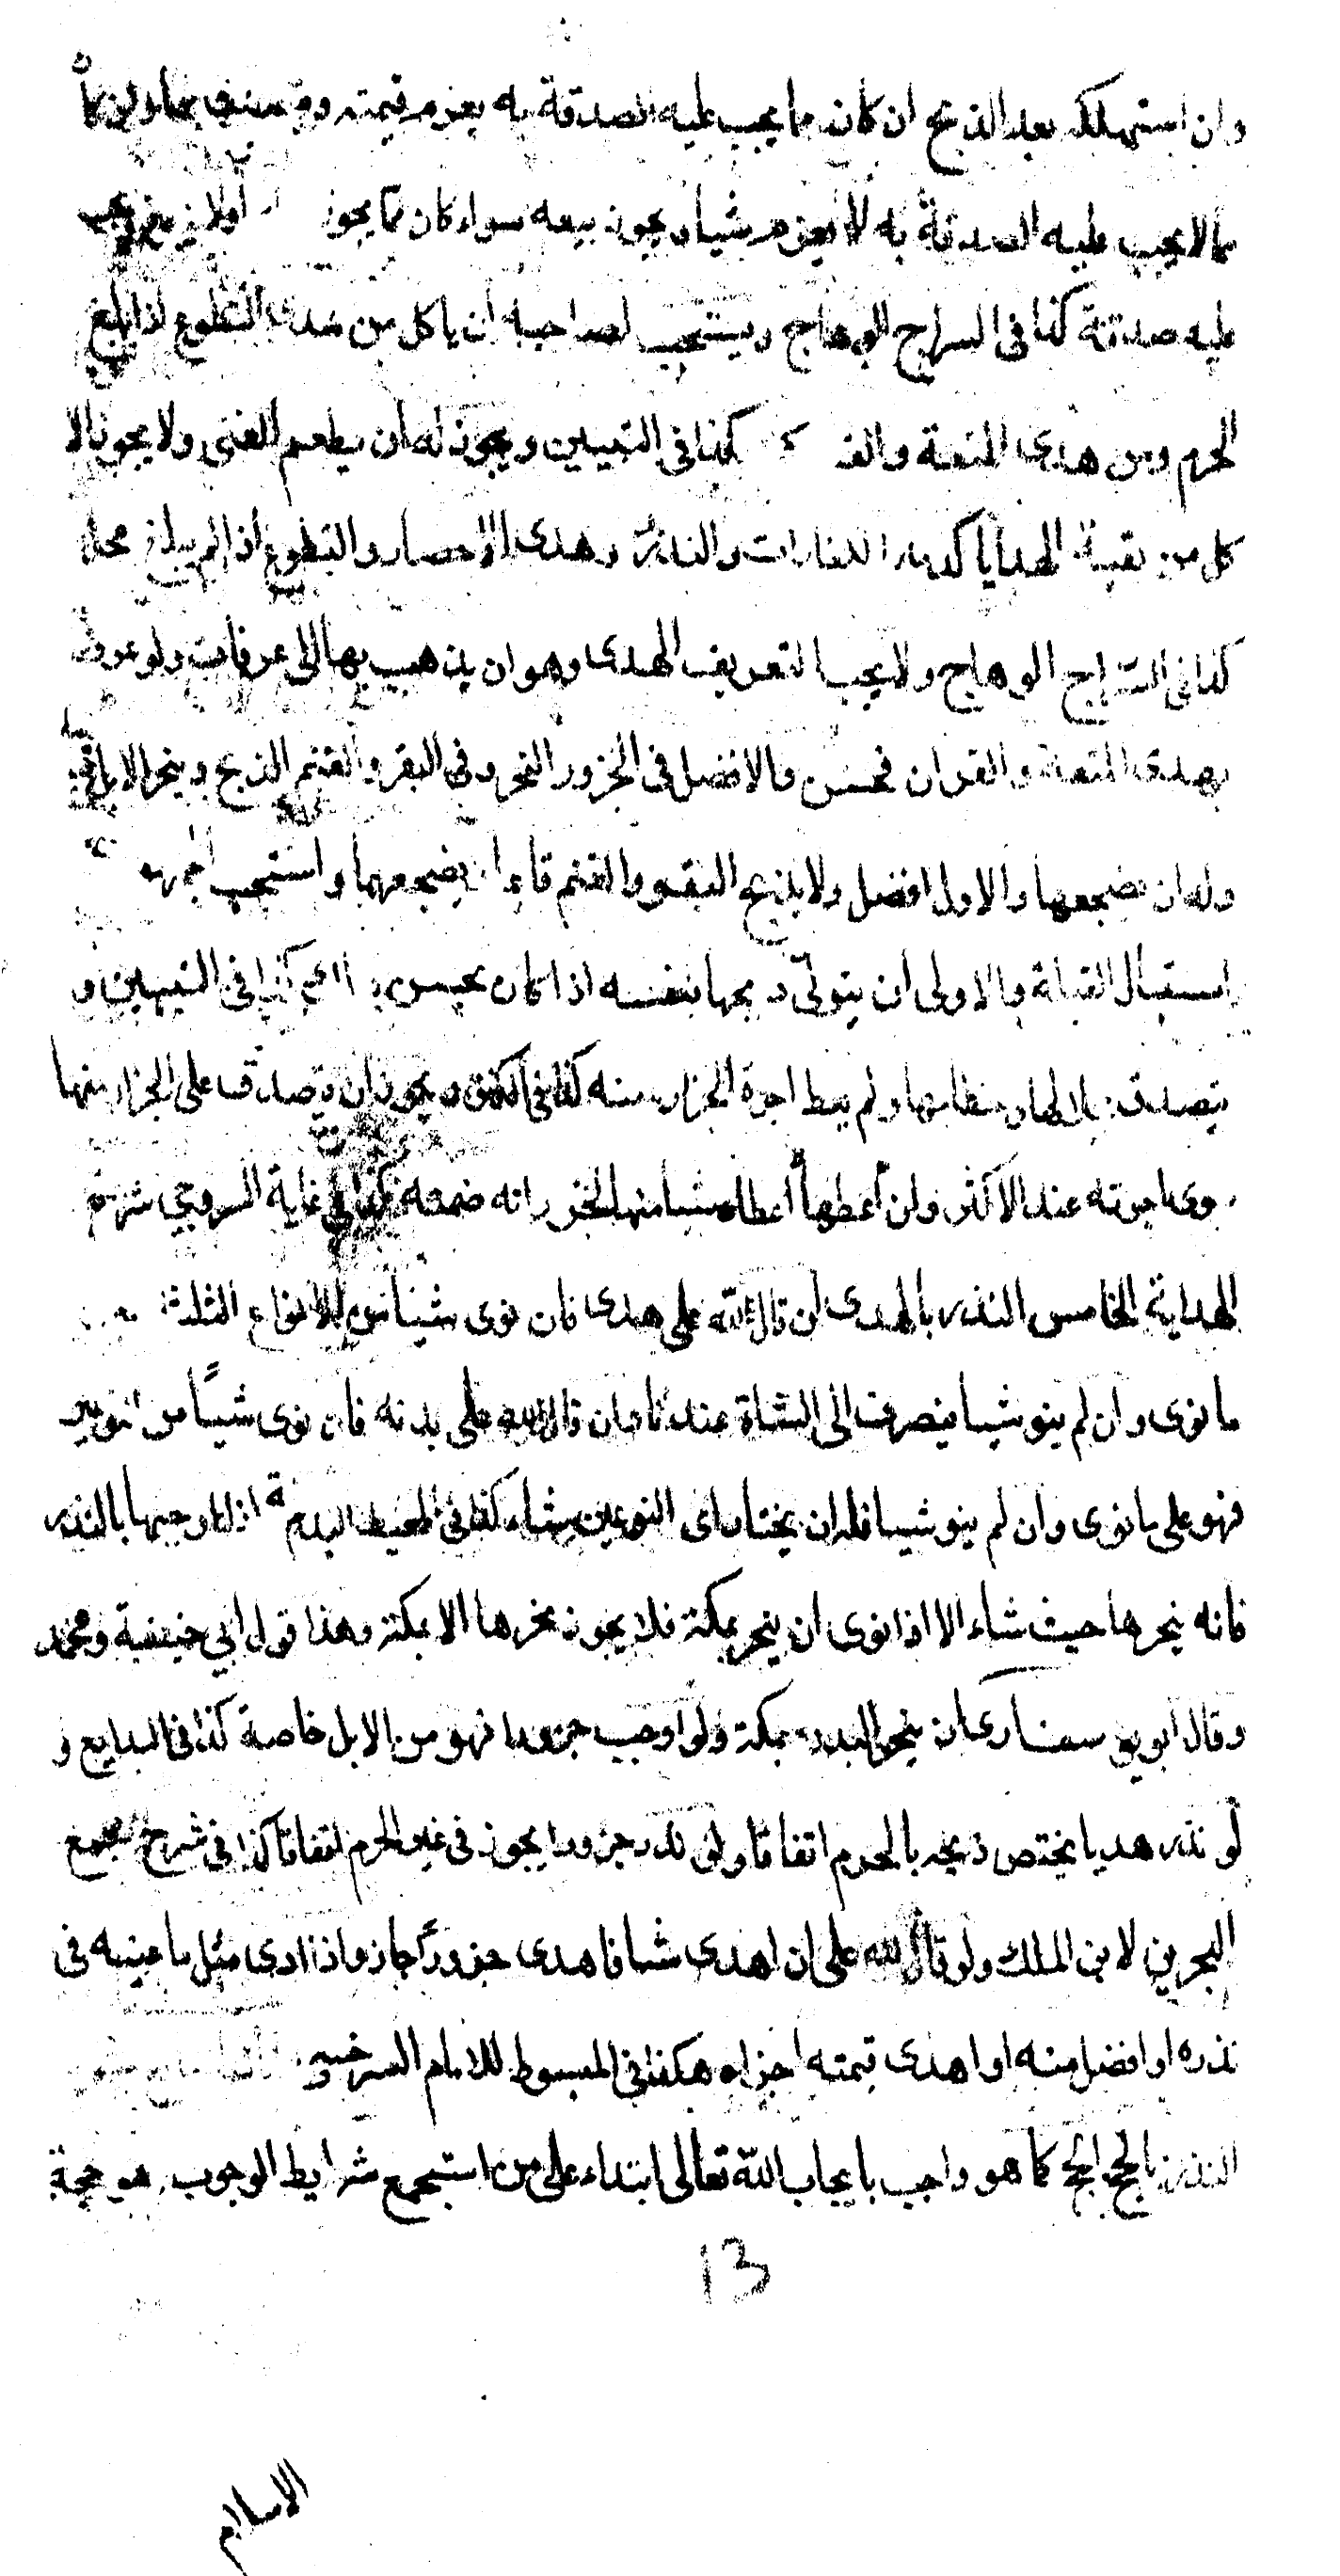 وان استهلكه بعد الذبح ان كان مما يجب عليه الصدقة به يغرم قيمته وان كان
مما لا يجب عليه الصدقة به لا يغرم شيأ ويجوز بيعه سواء كان مما يجوز اولا
عليه صدقة كذا فى السراج الوهاج ويستحب لصاحبه ان ياكل من هدى التطوع اذا بلغ
الحرم ومن هدى المتعة والقر كذا فى التبيين ويجوز له ان يطعم الغنى ولا يجوز الا
كل من بقية الهدايا كدماء الكفارات والنذر وهدى الاحصار والتطوع اذا لم يبلغ محله
كذا فى السراج الوهاج ولا يجب التعريف الهدى وهو ان يذهب بها الى عرفات ولو عرف
بهدى المتعة والقران فحسن والافضل فى الجزور النحر وفى البقر والغنم الذبح وينحر الابل قياما
وله ان يضجعها والاول افضل ولا يذبح البقر والغنم قاءما يضجعهما واستحب الجمهور
استقبال القبلة والاولى ان يتولى ذبحها بنفسه اذا كان يحسن ذالك كذا فى التبيين و
يتصدق بجلالها وخطامها ولم يعط اجرة الجزار منه كذا فى الكنز ويجوز ان يتصدق على الجزار منها
سوى اجرته عند الاكثر وان أعطها أعطاه شيا منها الجزارته ضمنه كذا فى غاية السروجى شرح
الهداية الخامس النذر بالهدى ان قال لله على هدى فان نوى شيئا من الانواع الثلثة
ما نوى وان لم ينو شيا ينصرف الى الشاة عندنا وان قال لله على بدنه فان نوى شيئًا من النوعين
فهو على ما نوى وان لم ينو شيا فله ان يختار اى النوعين شاء كذا فى المحيط البدنة اذا اوجبها بالنذر
فانه ينحرها حيث شاء الا اذا نوى ان ينحر بمكة فلا يجوز نحرها الا بمكة وهذا قول ابى حنيفة ومحمد
وقال ابو يوسف ارى ان ينحر البدن بمكة ولو اوجب جزورا فهو من الابل خاصة كذا فى البدايع و
لو نذر هديا يختص ذبحه بالحرم اتفاقا ولو نذر جزورا يجوز فى غير الحرم اتفاقا كذا فى شرح مجمع
البحرين لابن الملك ولو قال لله على ان اهدى شاة فاهدى جزورًا جاز واذا ادى مثل ما عينه فى
نذره او افضل منه او اهدى قيمته اجزاه هكذا فى المبسوط للامام السرخسى
النذر بالحج الحج كما هو واجب بايجاب الله تعالى ابتداء على من استجمع شرايط الوجوب هو حجة
13
الاسلام